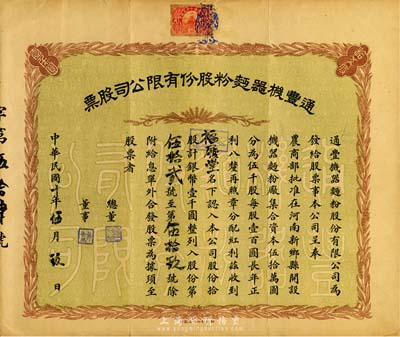 通豐機器麵粉股份有限公司股票
通豐機器麵粉股份有限公司為
發給股票事本公司呈奉
農商部批准在河南新鄉縣開設
機器麵粉廠集合資本伍拾萬圓
分為伍千股每股壹百圓長年正
利 釐再照章分配紅利茲收到
福 堂名下認入本公司股份拾
股計銀幣壹千圓整列入股份第
伍拾貳號至第伍拾玖號除
附給息單外合發股票為據須至
股票者
總董
董事
中華民國十年伍月 日
字第伍拾 號